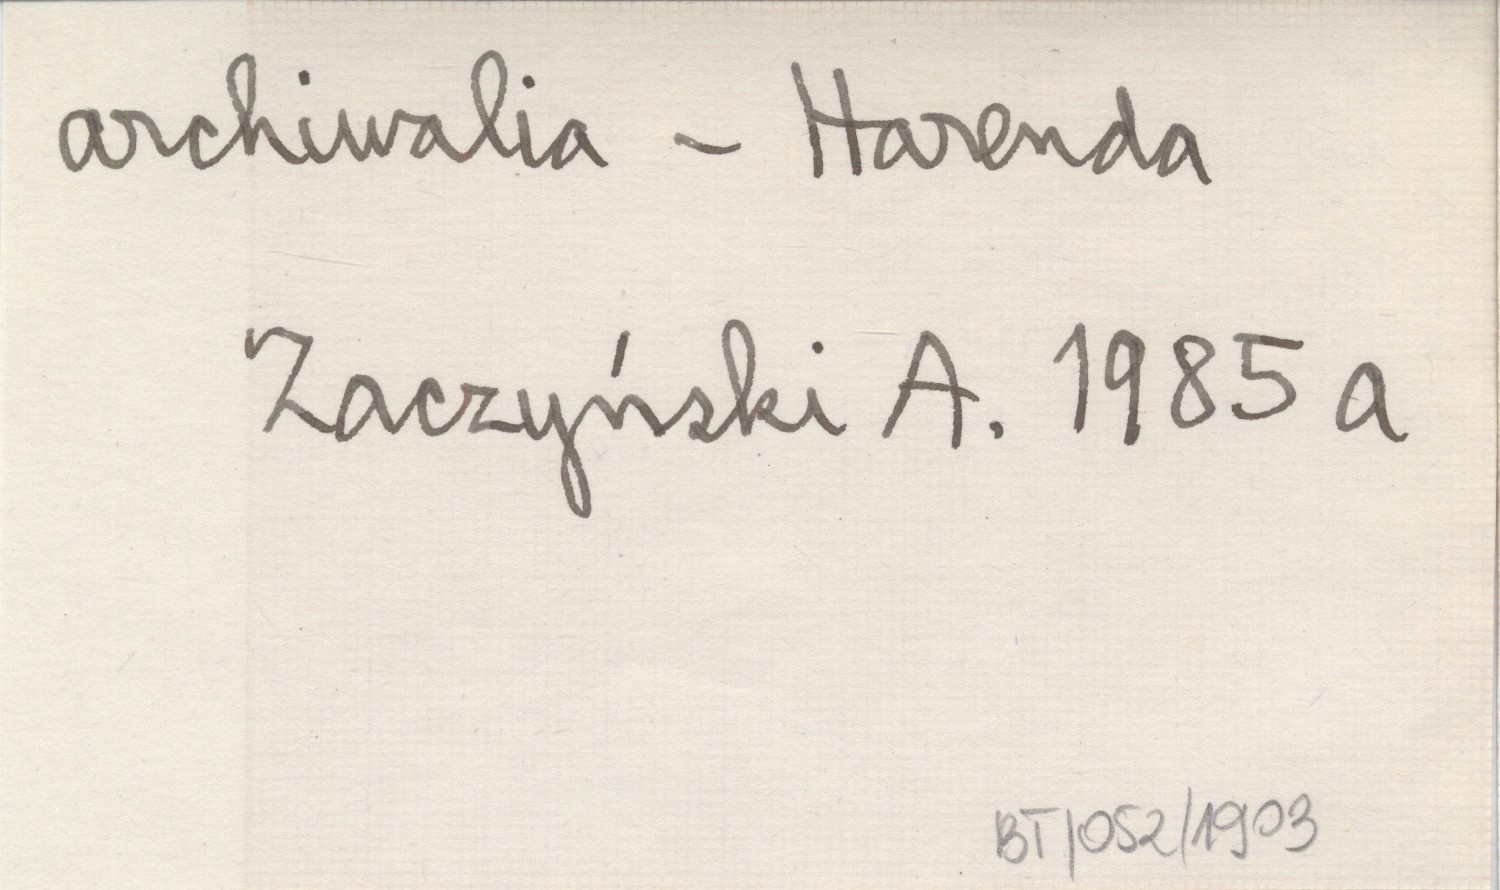 archiwalia - Harenda
Zaczyński A. 1985 a
BT/052/1903